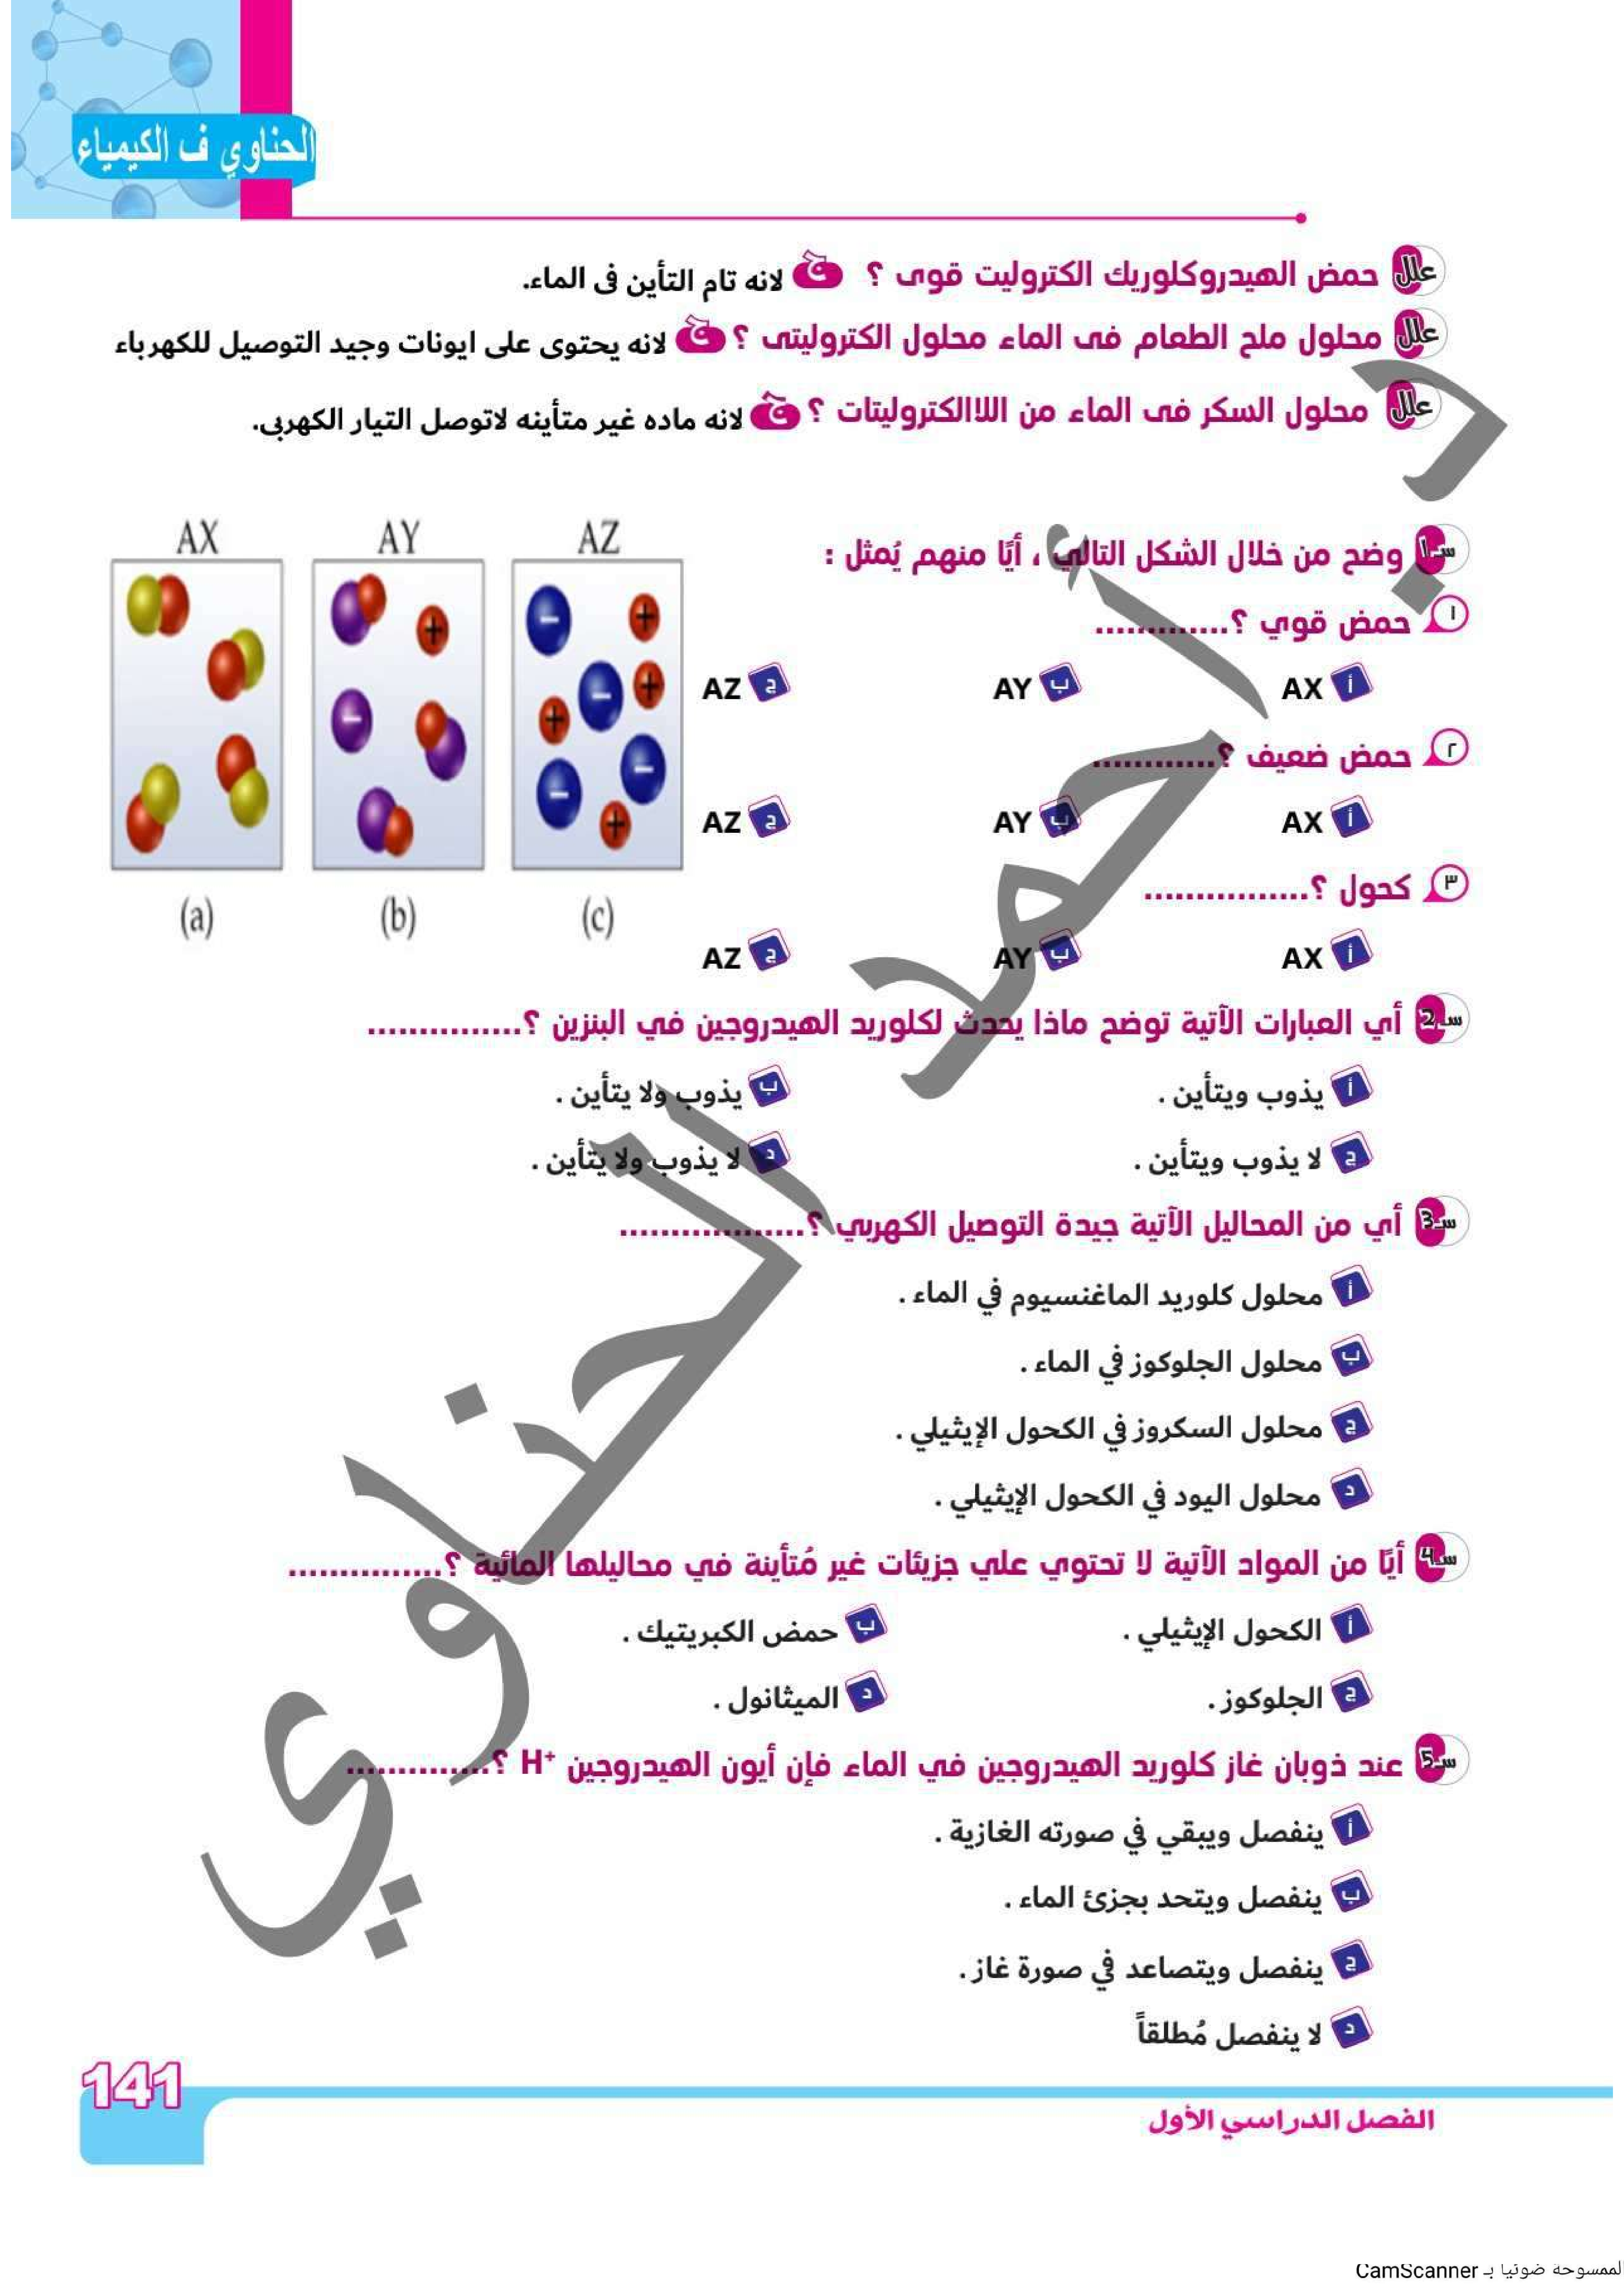 الحناوي ف الكيمياء
علل حمض الهيدروكلوريك الكتروليت قوى ؟ ج لانه تام التأين فى الماء.
علل محلول ملح الطعام فى الماء محلول الكتروليتى ؟ ج لانه يحتوى على ايونات وجيد التوصيل للكهرباء
علل محلول السكر فى الماء من اللاالكتروليتات ؟ ج لانه ماده غير متأينه لاتوصل التيار الكهربى.
AX AY AZ
س1 وضح من خلال الشكل التالي ، أيًا منهم يُمثل :
١ حمض قوي ؟.............
أ AX ب AY ج AZ
٢ حمض ضعيف ؟............
أ AX ب AY ج AZ
٣ كحول ؟................
(a) (b) (c)
أ AX ب AY ج AZ
س2 أي العبارات الآتية توضح ماذا يحدث لكلوريد الهيدروجين في البنزين ؟...............
أ يذوب ويتأين . ب يذوب ولا يتأين .
ج لا يذوب ويتأين . د لا يذوب ولا يتأين .
س3 أي من المحاليل الآتية جيدة التوصيل الكهربي ؟..................
أ محلول كلوريد الماغنسيوم في الماء .
ب محلول الجلوكوز في الماء .
ج محلول السكروز في الكحول الإيثيلي .
د محلول اليود في الكحول الإيثيلي .
س4 أيًا من المواد الآتية لا تحتوي علي جزيئات غير مُتأينة في محاليلها المائية ؟...............
أ الكحول الإيثيلي . ب حمض الكبريتيك .
ج الجلوكوز . د الميثانول .
س5 عند ذوبان غاز كلوريد الهيدروجين في الماء فإن أيون الهيدروجين H⁺ ؟..............
أ ينفصل ويبقي في صورته الغازية .
ب ينفصل ويتحد بجزئ الماء .
ج ينفصل ويتصاعد في صورة غاز .
د لا ينفصل مُطلقاً
د. أحمد الحناوي
141
الفصل الدراسي الأول
لممسوحة ضوئيا بـ CamScanner